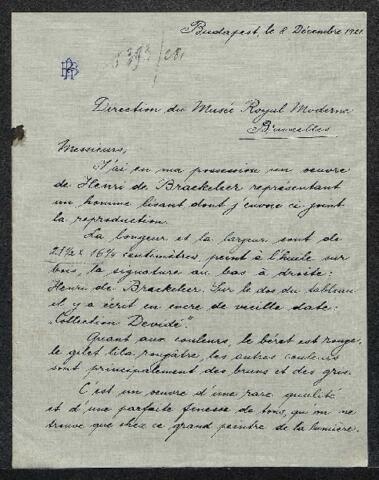 Budapest, le 8 Décembre 1921.
Direction du Musée Royal Moderne
Bruxelles
Messieurs,
J'ai en ma possession un oeuvre
de Henri de Braekeleer représentant
un homme lisant dont j'envoie ci-joint
la reproduction.
La longeur et la largeur sont de
21½ x 16¼ centimètres, peint à l'huile sur
bois, la signature au bas à droite:
Henri de Braekeleer. Sur le dos du tableau
il y a écrit en encre de vieille date:
"Collection Devidé".
Quant aux couleurs, le béret est rouge,
le gilet lila rougâtre, les autres couleurs
sont principalement des bruns et des gris.
C'est un oeuvre d'une rare qualité
et d'une parfaite finesse de tons, qu'on ne
trouve que chez ce grand peintre de la lumière.